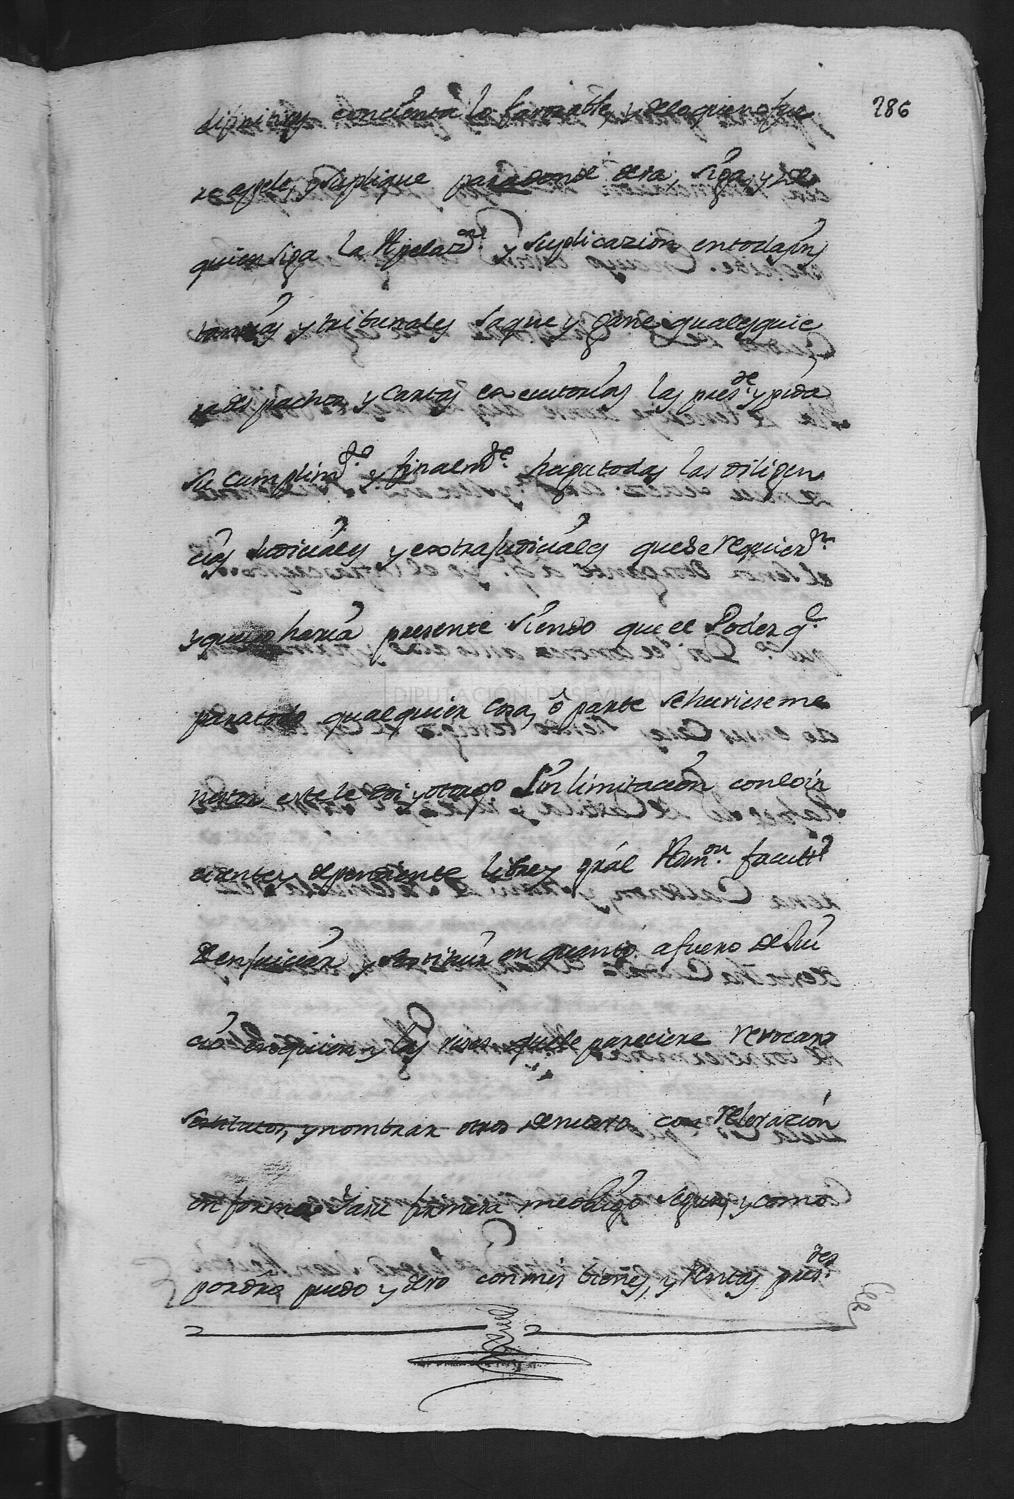 286
difinitibas consienta lo faborable, y de lo que no fue
re apele, y suplique para donde deva, siga, y de
quien siga la Apelazn. y suplicazion en todas yns
tanzias y tribunales saque y gane qualesquie
ra despachos y Cartas executorias las presde. y pida
su cumplimto. y finalmte. haga todas las diligen
cias Judiciales y extrajudiciales que se requieran.
y que yo haria presente siendo que el Poder qe.
para todo qualquier cosa, ó parte se huviese me
nester este le doi y otorgo Sin limitacion con los in
cidentes dependiente libre y gral Admon. facultd
de enjuiciar y sobstituir en quanto a fuero de Jui
cio
y las veces que le pareciere revocar
sostitutos, y nombrar otros de nuevo con relevazion
en forma Ya su firmeza me obligo segun, y como
podria puedo y devo con mis bienes, y Rentas presdes.
DIPUTACIÓN DE SEVILLA